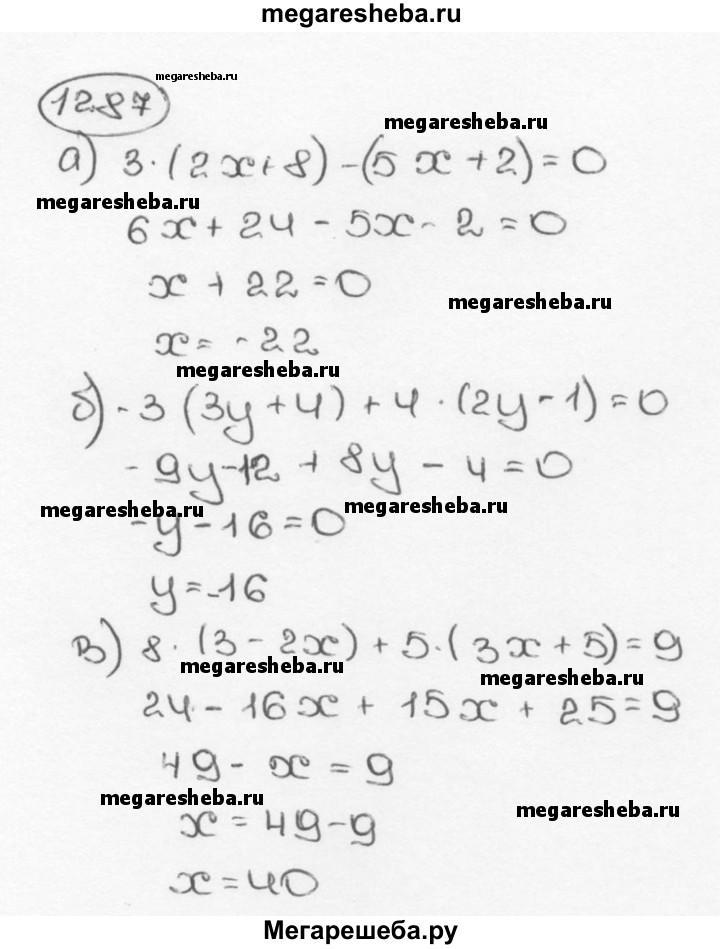 megaresheba.ru
megaresheba.ru
1287
megaresheba.ru
а) 3·(2x+8)-(5x+2)=0
megaresheba.ru
6x+24-5x-2=0
x+22=0
megaresheba.ru
x=-22
megaresheba.ru
б) -3(3y+4)+4·(2y-1)=0
-9y-12+8y-4=0
megaresheba.ru megaresheba.ru
-y-16=0
y=-16
в) 8·(3-2x)+5·(3x+5)=9
megaresheba.ru megaresheba.ru
24-16x+15x+25=9
49-x=9
megaresheba.ru megaresheba.ru
x=49-9
x=40
Мегарешеба.ру